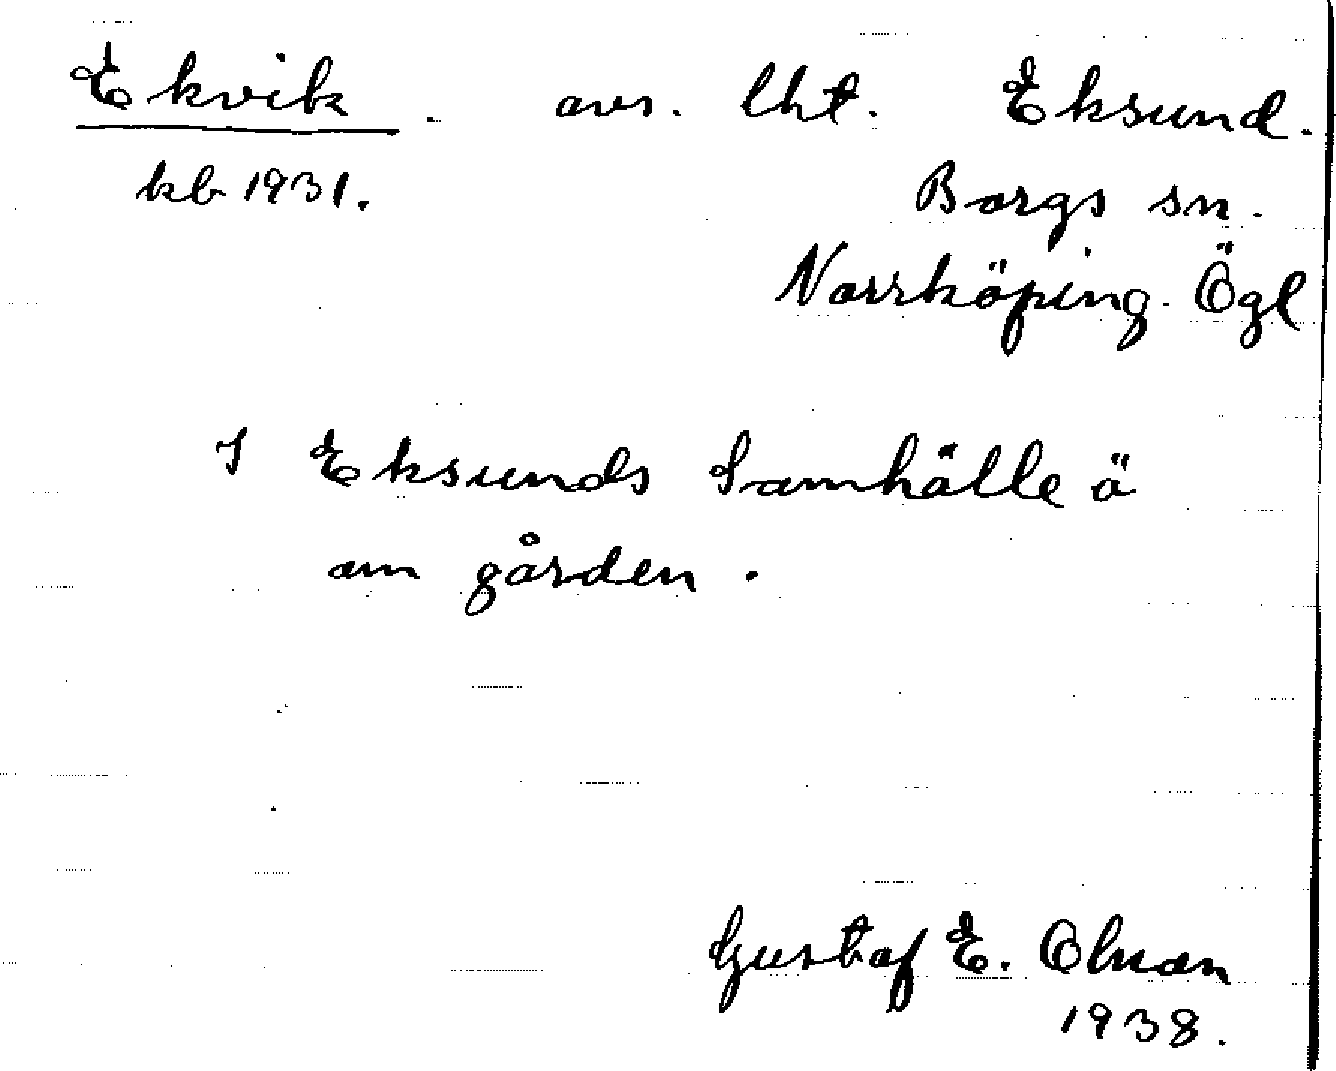 Ekvik. avs. lht. Eksund.
kb 1931.
Borgs sn.
Norrköping. Ögl
I Eksunds Samhälle ä
om gården.
Gustaf E. Olson
1938.